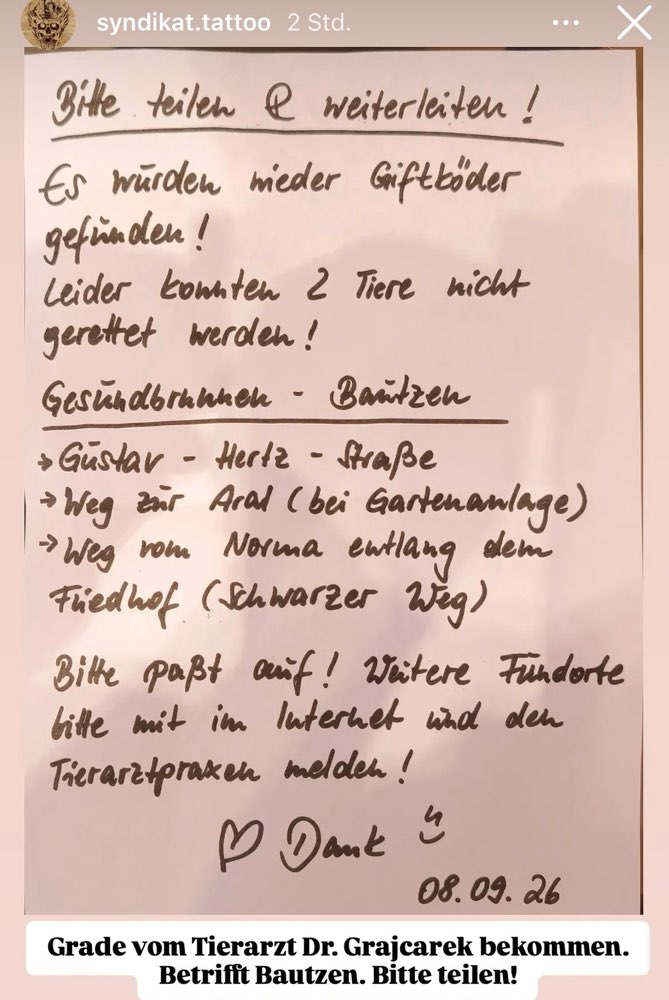 syndikat.tattoo 2 Std.
Bitte teilen & weiterleiten!
Es wurden wieder Giftköder
gefunden!
Leider konnten 2 Tiere nicht
gerettet werden!
Gesundbrunnen - Bautzen
→ Gustav - Hertz - Straße
→ Weg zur Aral (bei Gartenanlage)
→ Weg vom Norma entlang dem
Friedhof (Schwarzer Weg)
Bitte paßt auf! Weitere Fundorte
bitte mit im Internet und den
Tierarztpraxen melden!
♡ Dank
08.09.26
Grade vom Tierarzt Dr. Grajcarek bekommen.
Betrifft Bautzen. Bitte teilen!